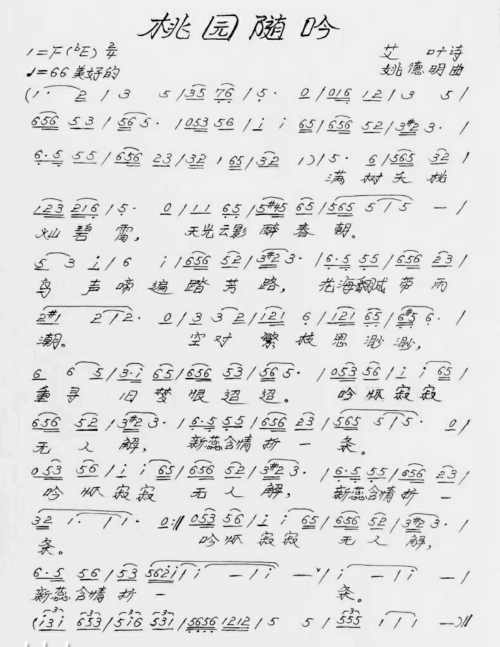 桃园随吟
1=F(ᵇE) 2/4 艾叶诗
♩=66 美好的 姚德明曲
(1· 2 | 3 5 | 35 76 | 5· 0 | 016 12 | 3 5 |
656 53 | 565· | 053 56 | i i 65 | 656 52 | 3#2 3· |
6·5 55 | 656 23 | 32 165 | 32 1) | 5· 6 | 565 32 |
满树夭桃
123 216 | 5· 0 | 11 65 | 5#45 65 | 565 5 | 5 — |
灿碧霄, 天光云影醉春朝。
5 3 i | 6 i | 656 52 | 3#2 3· | 6·5 55 | 656 23 |
鸟声啼遍踏芳路, 花海翻成带雨
2#1 2 | 2· 0 | 3 3 2 | 121 6 | 121 65 | 6#5 6· |
潮。 空对繁枝思渺渺,
6 6 5 | 3·i 65 | 656 53 | 56 5· | 053 56 | i i 65 |
重寻旧梦恨迢迢。 吟怀寂寂
656 52 | 3#2 3· | 6·5 55 | 656 23 | 565 5 | 5· 0 |
无人解, 新蕊含情折一条。
053 56 | i i 65 | 656 52 | 3#2 3· | 6·5 55 | 656 23 |
吟怀寂寂无人解, 新蕊含情折一
32 1· | 1 1· 0 :|| 053 56 | i i 65 | 656 52 | 3#2 3· |
条。 吟怀寂寂无人解,
6·5 56 | 53 562i | i — | i — ∨ | i — | i — |
新蕊含情折一 条。
(i3i 653 | 5i6 531 | 5656 1212 | 5 5 | 555 i | i —) ||